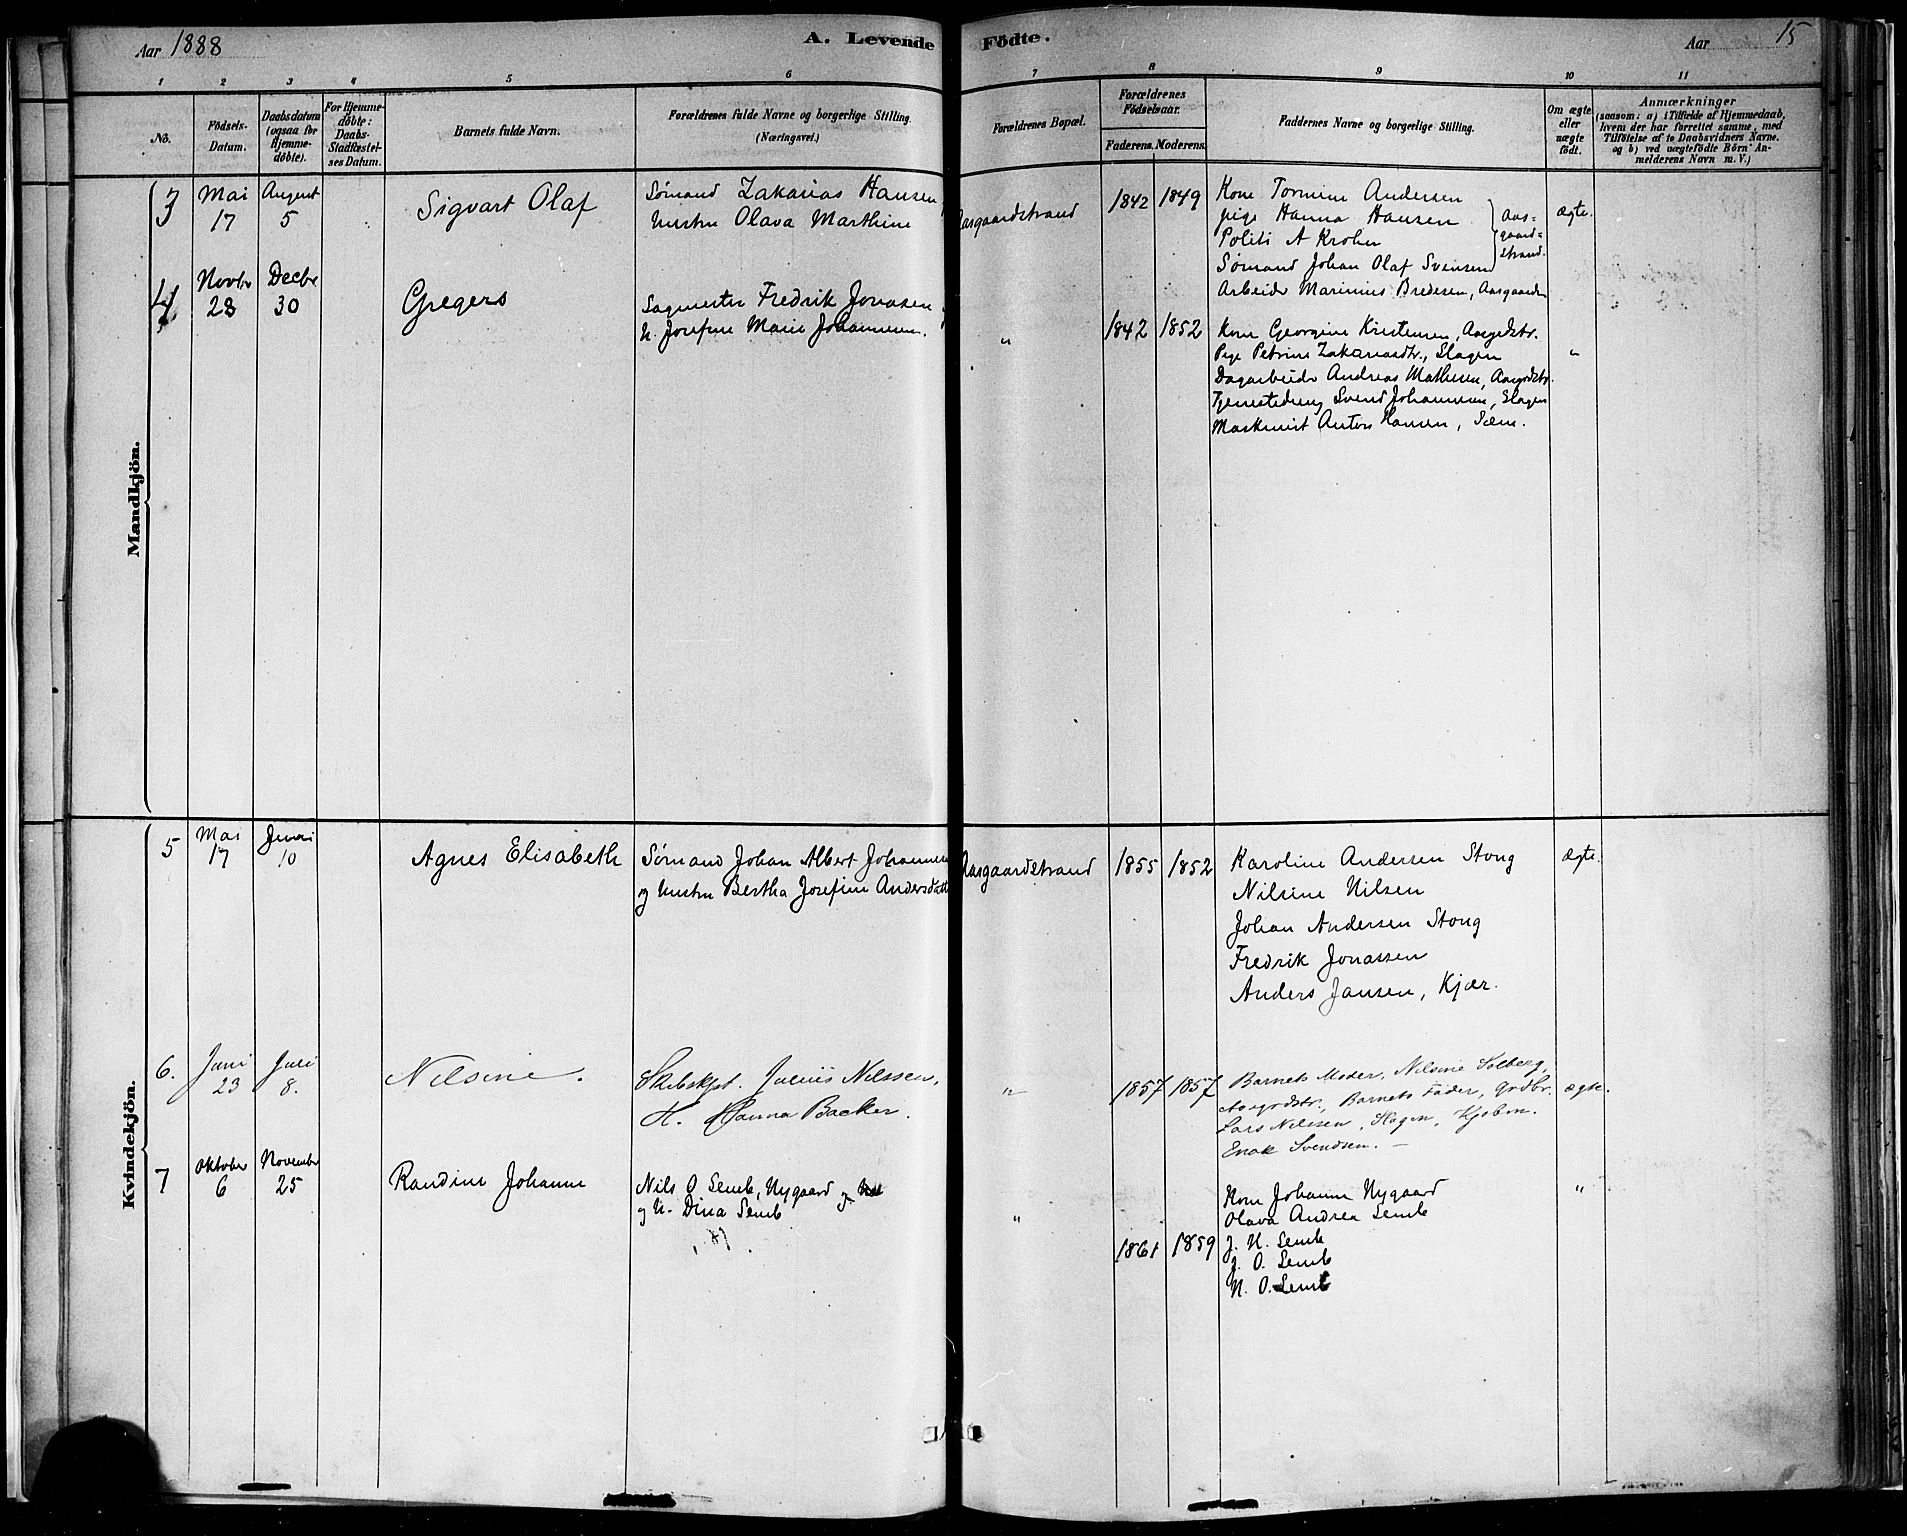 Aar 1888
A. Levende Födte.
Aar
15
1 2 3 4 5 6 7 8 9 10 11
No.
Födsels-Datum.
Daabsdatum (ogsaa for Hjemme-döbte).
For Hjemme-döbte: Daabs-Stadfæstel-ses Datum.
Barnets fulde Navn.
Forældrenes fulde Navne og borgerlige Stilling.
(Næringsvei.)
Forældrenes Bopæl.
Forældrenes Födselsaar.
Faderens. Moderens.
Faddernes Navne og borgerlige Stilling.
Om ægte eller uægte födt.
Anmærkninger
(saasom: a) i Tilfælde af Hjemmedaab,
hvem der har forrettet samme, med
Tilföielse af to Daabsvidners Navne,
og b) ved uægtefödte Börn An-
melderens Navn m. V.)
Mandkjön.
3
Mai 17
August 5
Sigvart Olaf
Sømand Zakarias Hansen
Hustru Olava Marthine
Aasgaardstrand
1842 1849
Kone Tomine Andersen
pige Hanna Hansen
Politi A Krohn
Sømand Johan Olaf Svensen
Aas-
gaard-
strand.
Arbeider Marinius Bredesen, Aasgaarden
ægte.
4
Novbr 28
Decbr 30
Gregers
Sagmester Fredrik Jonasen
H. Josefine Marie Johannesen.
"
1842 1852
Kone Georgine Kristensen, Aasgdstr.
Pige Petrine Zakariasdtr., Slagen
Dagarbeider Andreas Mathisen, Aasgdstr.
Tjenestedreng Svend Johannesen, Slagen
Maskinist Anton Hansen, Sem.
"
Kvindekjön.
5
Mai 17
Juni 10
Agnes Elisabeth
Sømand Johan Albert Johannesen
og Hustru Bertha Josefine Andersdatter
Aasgaardstrand
1855 1852
Karoline Andersen Stong
Nilsine Nilsen
Johan Andersen Stong
Fredrik Jonassen
Anders Jansen, Kjær.
ægte.
6.
Juni 23
Juli 8.
Nilsine.
Skibskpt. Julius Nilssen,
H. Hanna Backer.
"
1857 1857
Barnets Moder, Nilsine Solberg,
Aasgrdstr., Barnets Fader, Grdbr.
Lars Nilssen, Slagen, Kjøbm.
Enok Svendsen. —
ægte.
7
Oktober 6
November 25
Randine Johanne
Nils O Semb, Nygaard
og H. Dina Semb
"
1861 1859
Kone Johanne Nygaard
Olava Andrea Semb
J. N. Semb
J. O. Semb
N. O. Semb
"